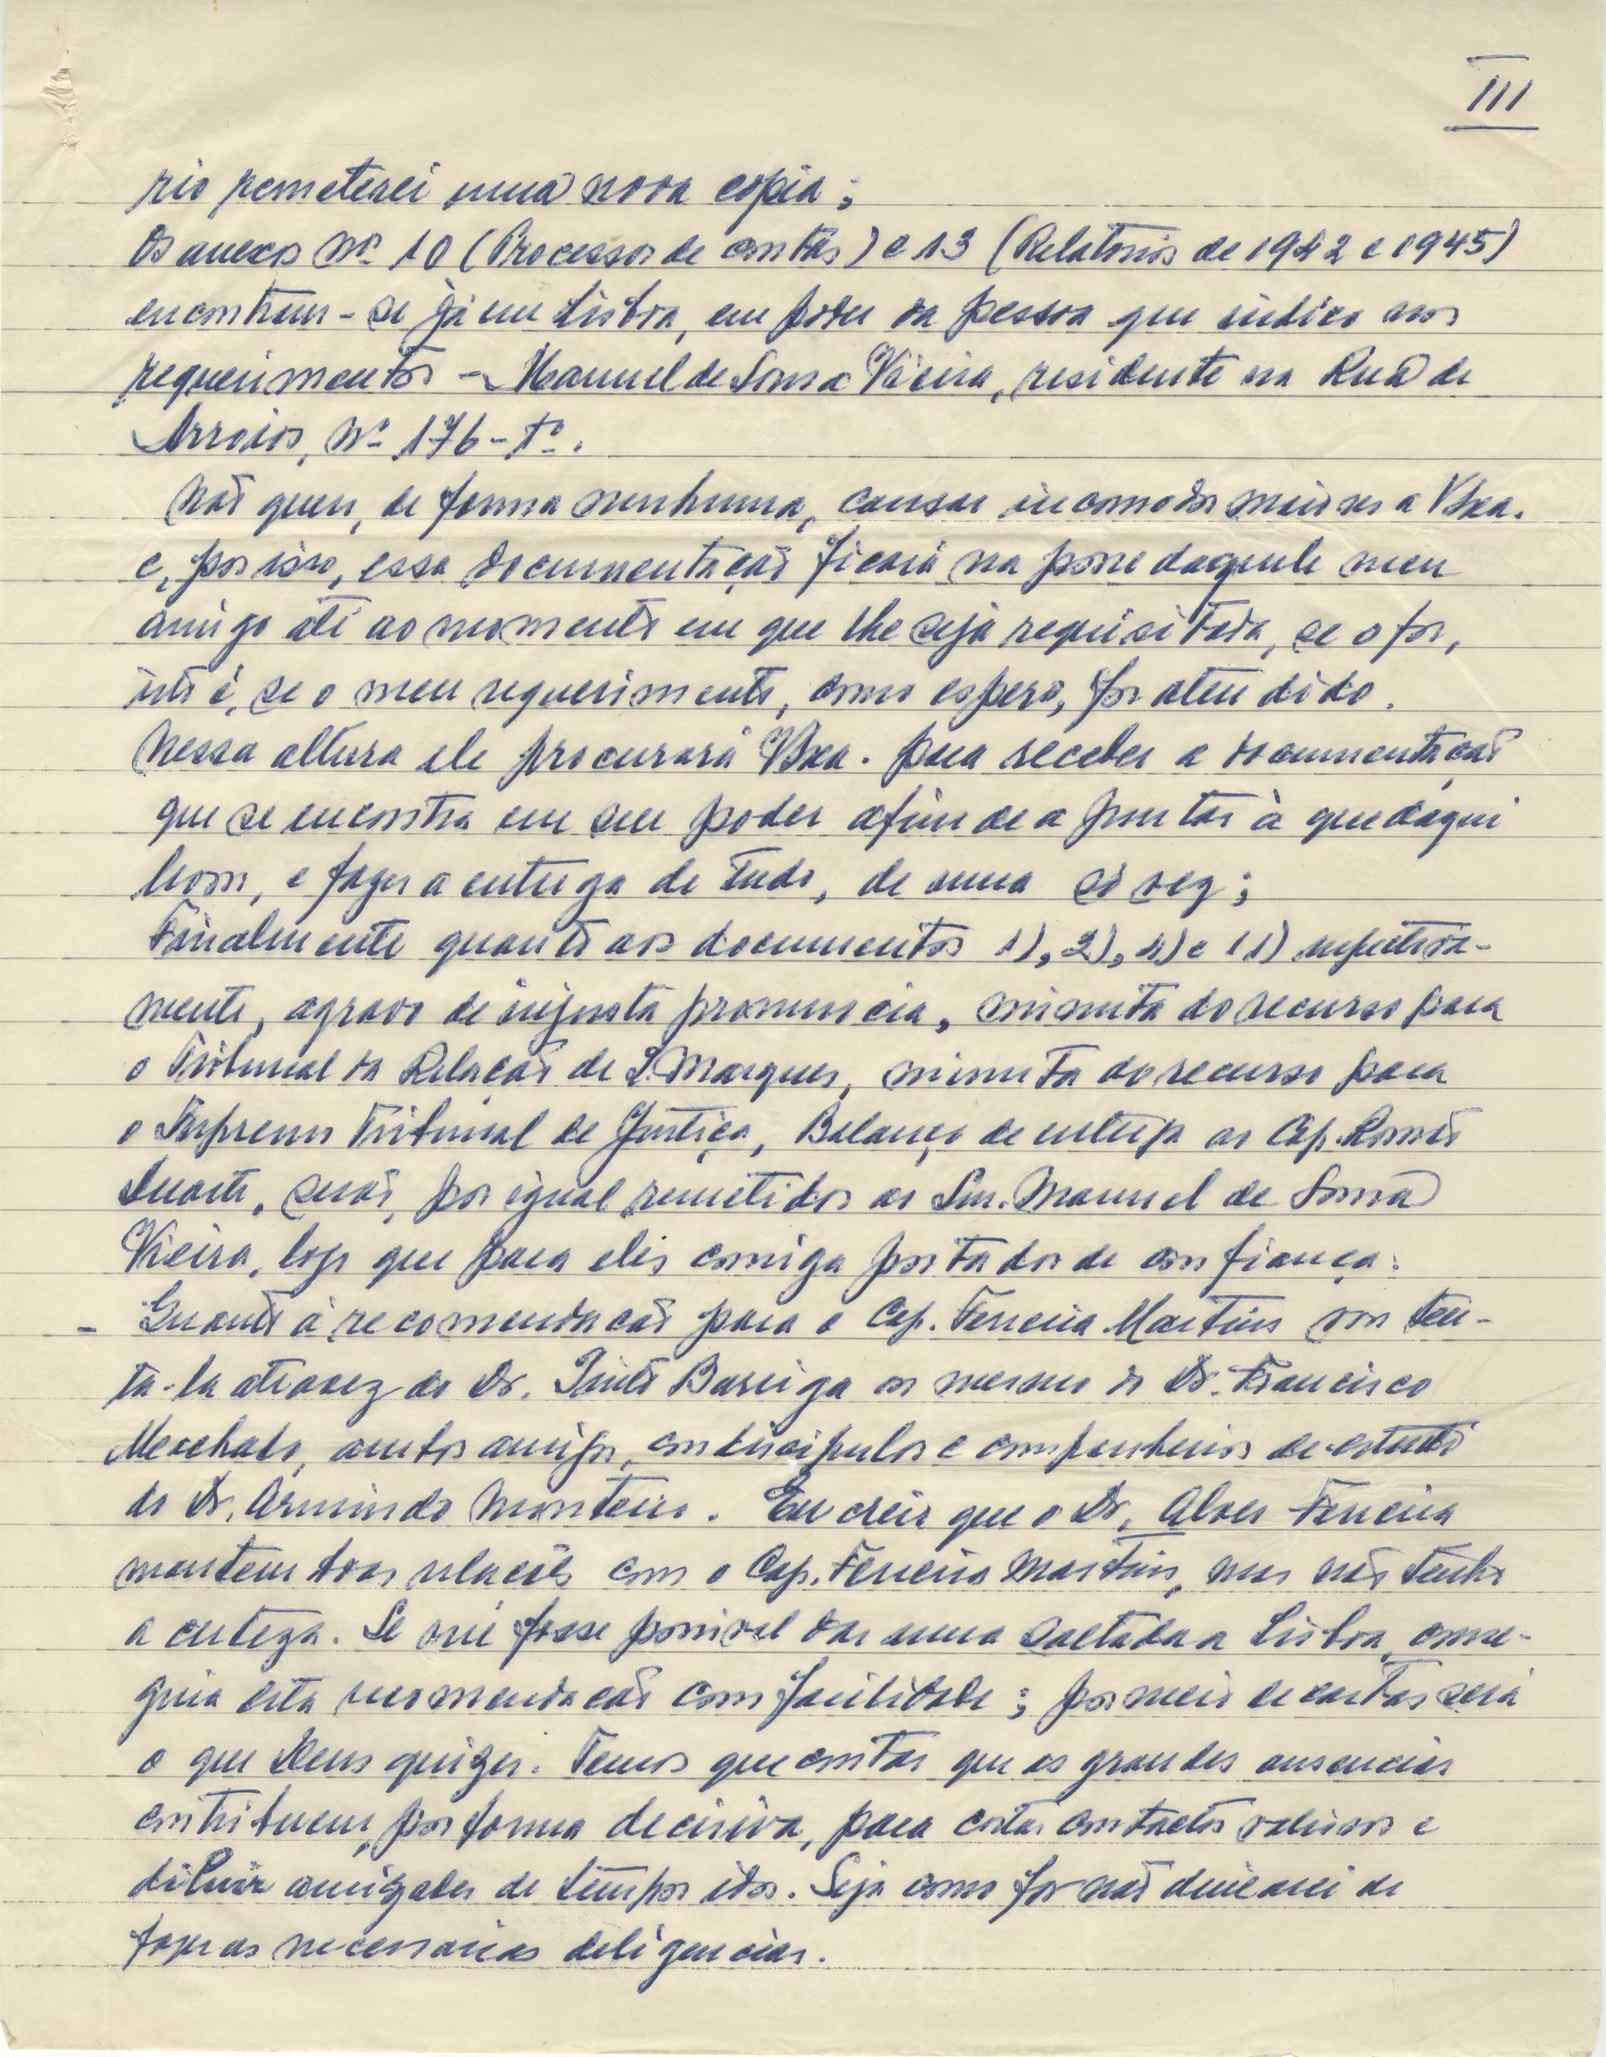 III
rio remeterei uma nova copia;
Os anexos Nº 10 (Processos de contas) e 13 (Relatorios de 1942 e 1945)
encontram-se já em Lisboa, em poder da pessoa que indico nos
requerimentos - Manuel de Sousa Vieira, residente na Rua de
Arroios, Nº 176-1º.
Não quero, de forma nenhuma, causar incomodos maiores a V.Exa.
e, por isso, essa documentação ficará na posse daquele meu
amigo até ao momento em que lhe seja requisitada, se o for,
isto é, se o meu requerimento, como espero, for atendido.
Nessa altura ele procurará V.Exa. para receber a documentação
que se encontra em seu poder afim de a juntar à que daqui
levou, e fazer a entrega de tudo, de uma só vez;
Finalmente quanto aos documentos 1), 2), 4) e 11) respectiva-
mente, agravo de injusta pronuncia, minuta do recurso para
o Tribunal da Relação de L. Marques, minuta do recurso para
o Supremo Tribunal de Justiça, Balanço de entrega ao Cap. Romão
Duarte, serão, por igual remetidos ao Snr. Manuel de Sousa
Vieira, logo que para eles consiga portador de confiança.
- Quanto à recomendação para o Cap. Ferreira Martins vou ten-
ta-la atravez do Dr. Pinto Barriga ou mesmo do Dr. Francisco
Machado, ambos amigos, condiscipulos e companheiros de estudo
do Dr. Armindo Monteiro. Eu creio que o Dr. Alves Ferreira
mantem boas relações com o Cap. Ferreira Martins, mas não tenho
a certeza. Se me fosse possivel dar uma saltada a Lisboa, conse-
guia esta recomendação com facilidade; por meio de cartas será
o que Deus quizer. Temos que contar que as grandes ausencias
contribuem, por forma decisiva, para cortar contactos valiosos e
diluir amizades de tempos idos. Seja como for não deixarei de
fazer as necessarias deligencias.